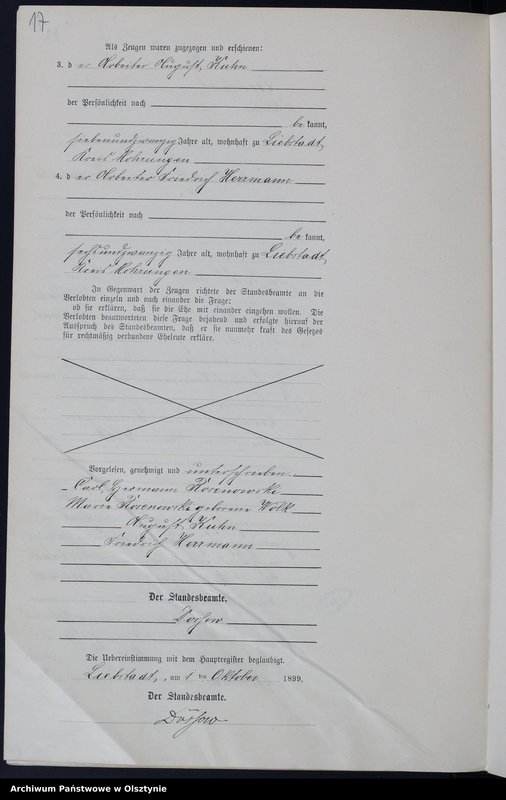 17
Als Zeugen waren zugezogen und erschienen:
3. der Arbeiter August Kuhn
der Persönlichkeit nach
be kannt,
siebenundzwanzig Jahre alt, wohnhaft zu Liebstadt,
Kreis Mohrungen
4. der Arbeiter Friedrich Herrmann
der Persönlichkeit nach
be kannt,
sechsundzwanzig Jahre alt, wohnhaft zu Liebstadt,
Kreis Mohrungen
In Gegenwart der Zeugen richtete der Standesbeamte an die
Verlobten einzeln und nach einander die Frage:
ob sie erklären, daß sie die Ehe mit einander eingehen wollen. Die
Verlobten beantworteten diese Frage bejahend und erfolgte hierauf der
Ausspruch des Standesbeamten, daß er sie nunmehr kraft des Gesetzes
für rechtmäßig verbundene Eheleute erkläre.
Vorgelesen, genehmigt und unterschrieben
Carl Hermann Rosenowske
Marie Rosenowske geborene Wölk
August Kuhn
Friedrich Herrmann
Der Standesbeamte.
Die Uebereinstimmung mit dem Hauptregister beglaubigt.
Liebstadt, am 1 ten Oktober 1899.
Der Standesbeamte.
Archiwum Państwowe w Olsztynie